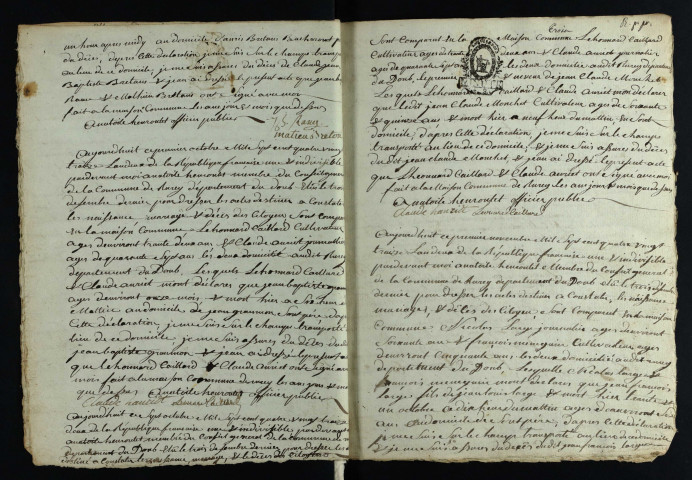 un heure apres midy au domicile
de déces, depres Cette déclaration je me suis sur le champ transp
au lieu de ce domicile, je me suis assuré du déces de Claude
Baptiste Bretans
Rame & Mathieu Bretans ont signé avec moi
fait a la maison Commune les an jour & mois que dessus
anatoile henrontet officier public
Rame
matieu Breton
Aujourdhuit ce premier octobre Mile Sept cent quatre vingt
traize Landeux de la République francaise une & indivisible
pardevant moi anatoile henrontet membre du Conseil general
de la Commune de Rurey departement du doub Elu le trois
desembre dernier pour dresser les actes destinés a Constater
les naissance mariage & déces des Citoyens Sont compar
en la maison Commune Lehonnard Caillard Cultivateur
agés denviront trante deux ans & Claude auriot journallier
agés de quarante Sept ans les deux domiciliés audit Rurey
departement du Doub, Lesquels Lehonnard Caillard
& Claude auriot mont déclarés que jean baptiste grammon
agés denviront onze mois & mort hier a
au domicile de jean grammon Son pere d'apres
Cette déclaration je me suis Sur le champ transporté au
lieu de ce domicile je me suis assuré du déces du dit
jean baptiste grammon & jean ai dressé le present acte
que Lehonnard Caillard & Claude auriot ont signé avec
moi fait a la maison Commune de Rurey les an jour & moi
que dessus Anatoile henrontet officier public
Claude hauriot Leonard Caillard
Aujourdhuit ce sept octobre Mile Sept cent quatre vingt traize
deux de la République francaise une & indivisible pardevant moi
anatoile henrontet membre du Conseil general de la Commune de Rurey
departement du Doub Elu le trois desembre dernier pour dresser les actes
destiné a Constater les naissance, mariage, & les déces des Citoyens
Trois
Sont comparut en la Maison Commune Lehonnard Caillard
Cultivateur agés de trante deux ans & Claude auriot journallier
agés de quarante Sept ans les deux domiciliés audit Rurey departement
du Doub, de jean Claude Monchet
Lesquels Lehonnard Caillard & Claude auriot mont déclarés
que ledit jean Claude Monchet Cultivateur agés de Soixante
& quinze ans & mort hier a neuf heure du mattin en Sont
domicile, d'apres cette déclaration, je me suis Sur le champ
transporté au lieu de ce domicile, je me suis assuré du déces
du dit jean Claude Monchet & jean ai dressé le present acte
que Lehonnard Caillard & Claude auriot ont signé avec moi
fait a la Maison Commune de Rurey les an jour & moi que dessus
Anatoile henrontet officier public
Claude hauriot Leonard Caillard
Aujourdhuit ce premier novembre Mil Sept cent quatre vingt
traize Landeux de la République francaise une & indivisible
pardevant moi anatoile henrontet Membre du Conseil general
de la Commune de Rurey departement du Doub Elu le trois desembre
dernier pour dresser les actes destinés a Constater, les naissance
mariages, & déces des Citoyens Sont Comparut en la maison
Commune Nicolas Large journallier agés denviront
Soixante ans & françois mengain Cultivateur agés
denviront Cinquante ans les deux domiciliés audit Rurey
departement du Doub, Lesquels Nicolas large &
françois mengain mont déclarés que jean françois
large fils de jean Louis large & mort hier trante
un octobre a dix heure du mattin agés
ans au domicile de Son pere, d'apres cette déclaration
je me suis Sur le champ transporté au lieu du domicile
& je me suis assuré du déces du dit jean françois large